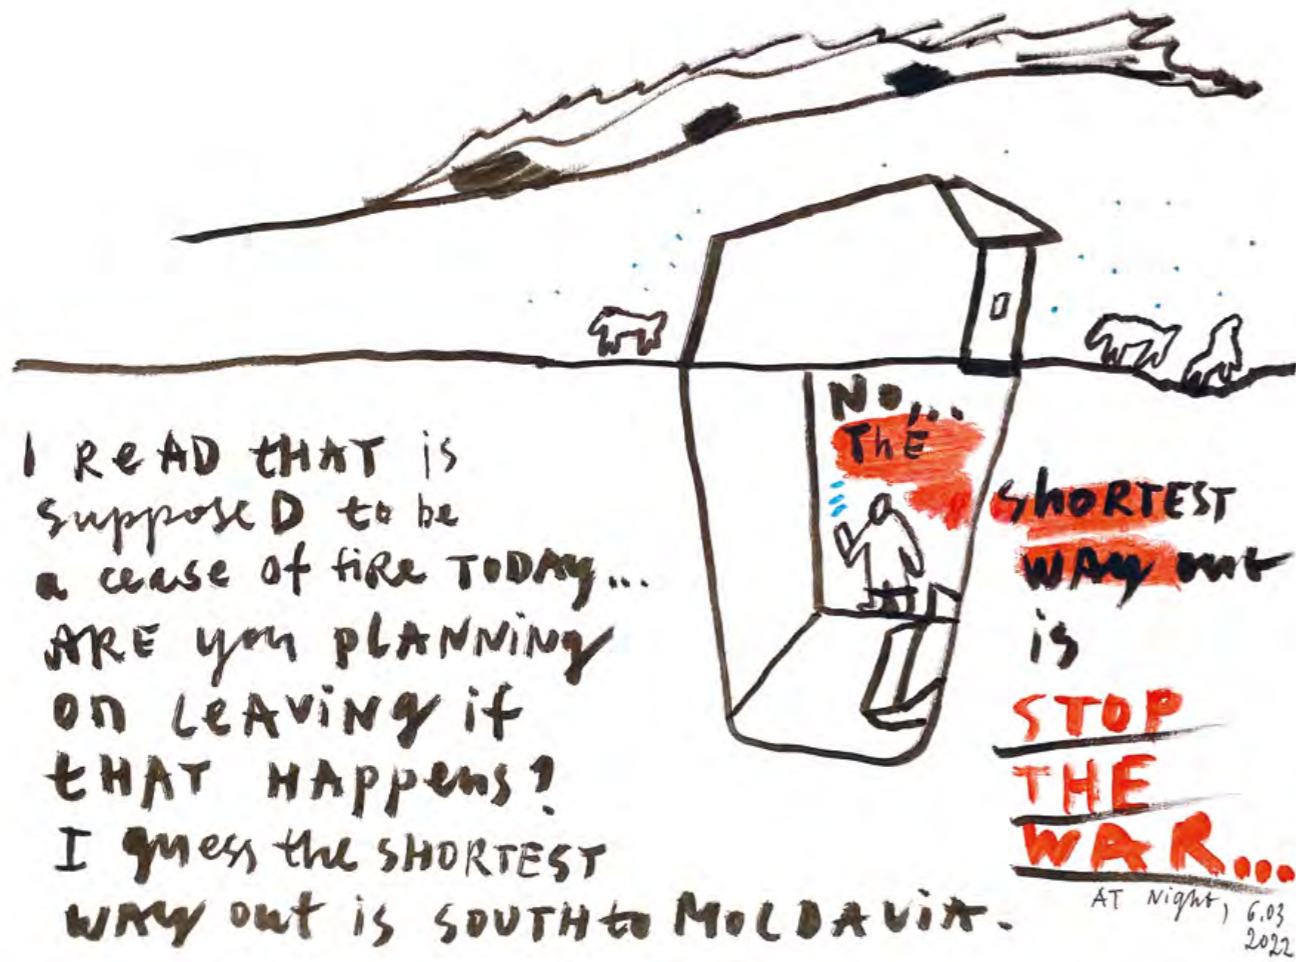 I READ tHAT is
supposeD to be
a cease of fiRe TODAY...
ARE you pLANNiNg
on LeAViNg if
tHAT HAppens?
I guess the SHORTEST
WAy out is SOUTH to MOLDAViA.
NO...
ThE
shORTEST
WAy out
is
STOP
THE
WAR...
AT Night, 6.03
2022